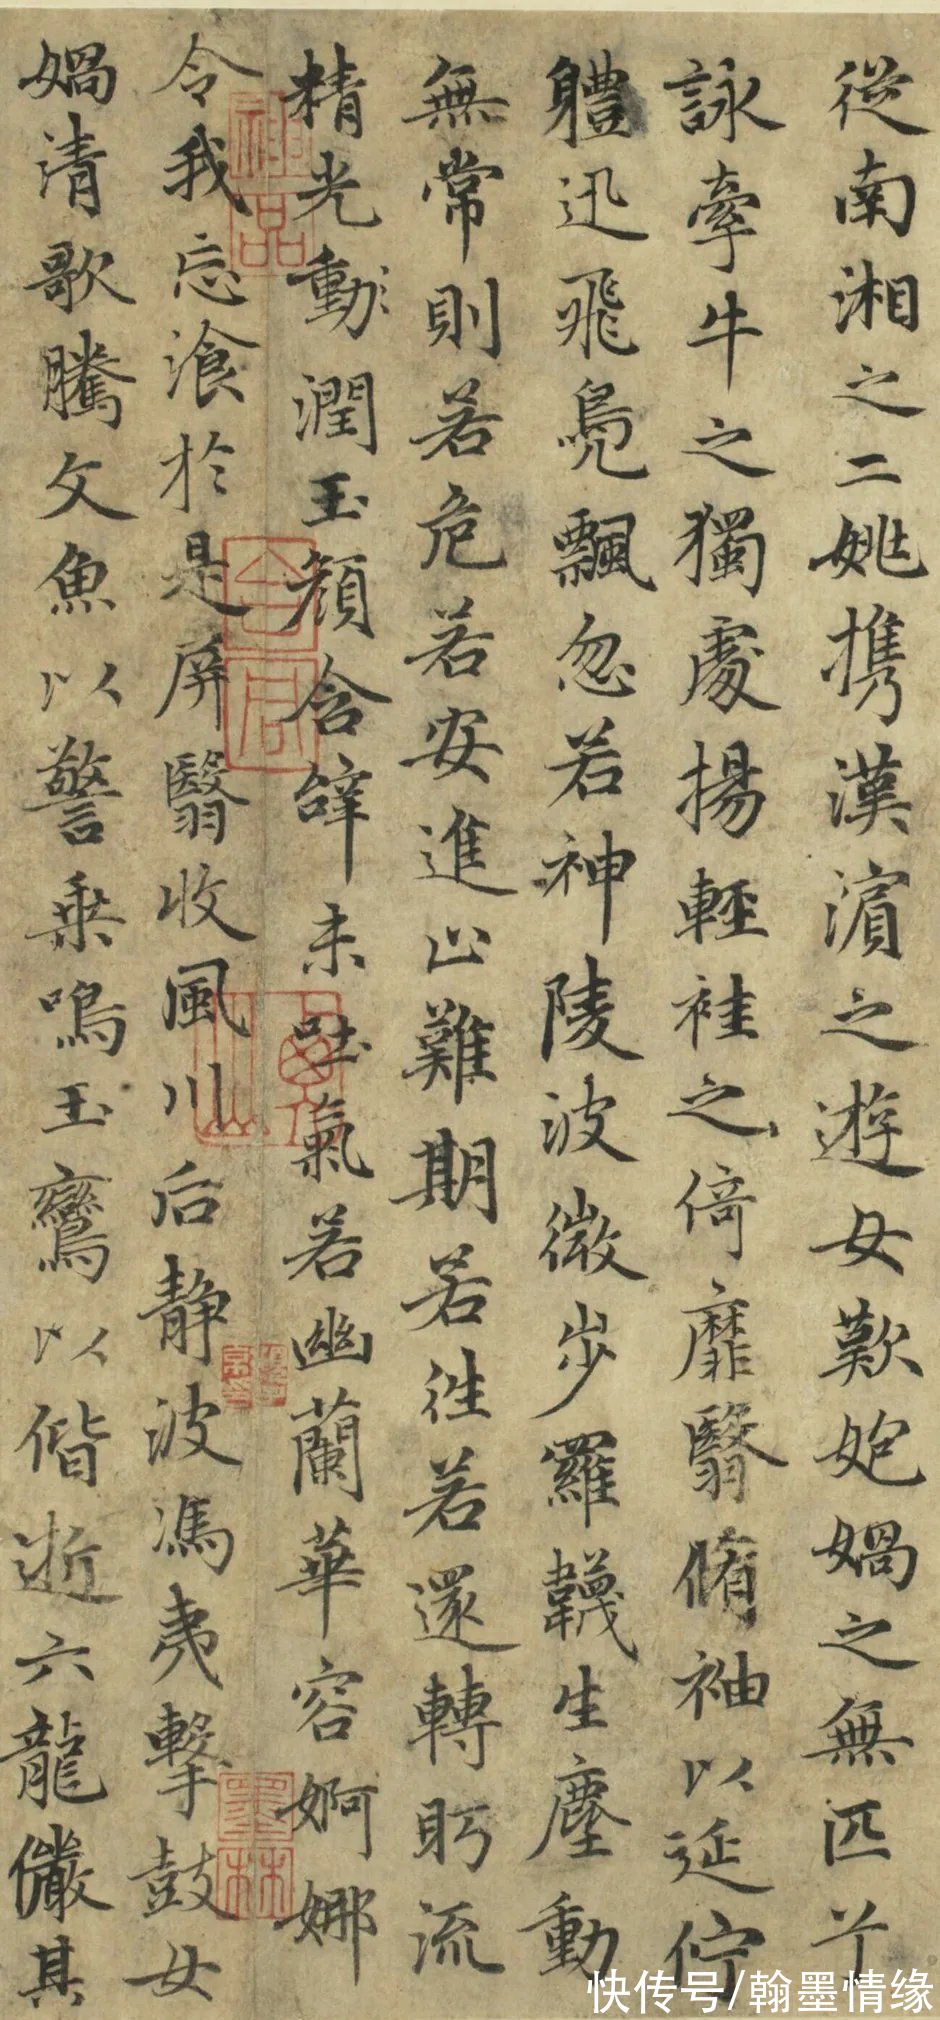 從南湘之二姚携漢濱之遊女歎㚿媧之無匹兮
詠牽牛之獨處揚輕袿之倚靡翳脩袖以延佇
軆迅飛鳧飄忽若神陵波微步羅韈生塵動
無常則若危若安進止難期若往若還轉眄流
精光動潤玉顏含辝未吐氣若幽蘭華容婀娜
令我忘飡於是屏翳收風川后靜波馮夷擊鼓女
媧清歌騰文魚以警乘鳴玉鸞以偕逝六龍儼其
神品
墨林
快传号/翰墨情缘